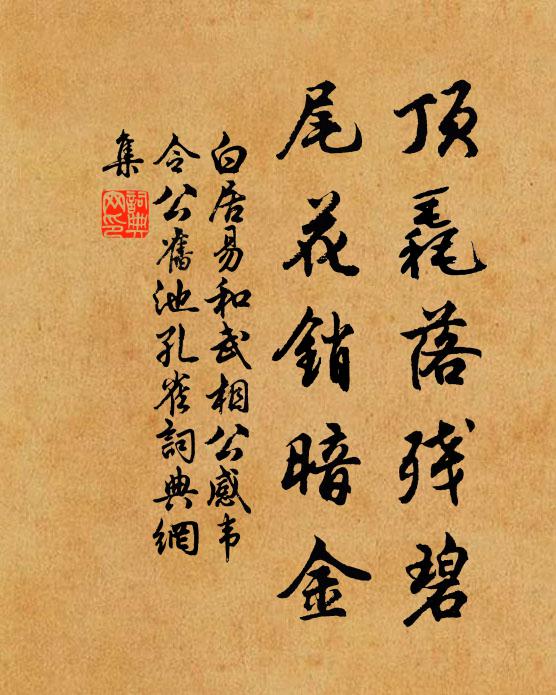 顶毳落残碧
尾花銷暗金
白居易和武相公感韦
令公舊池孔雀詞典網
集
詞典
网印